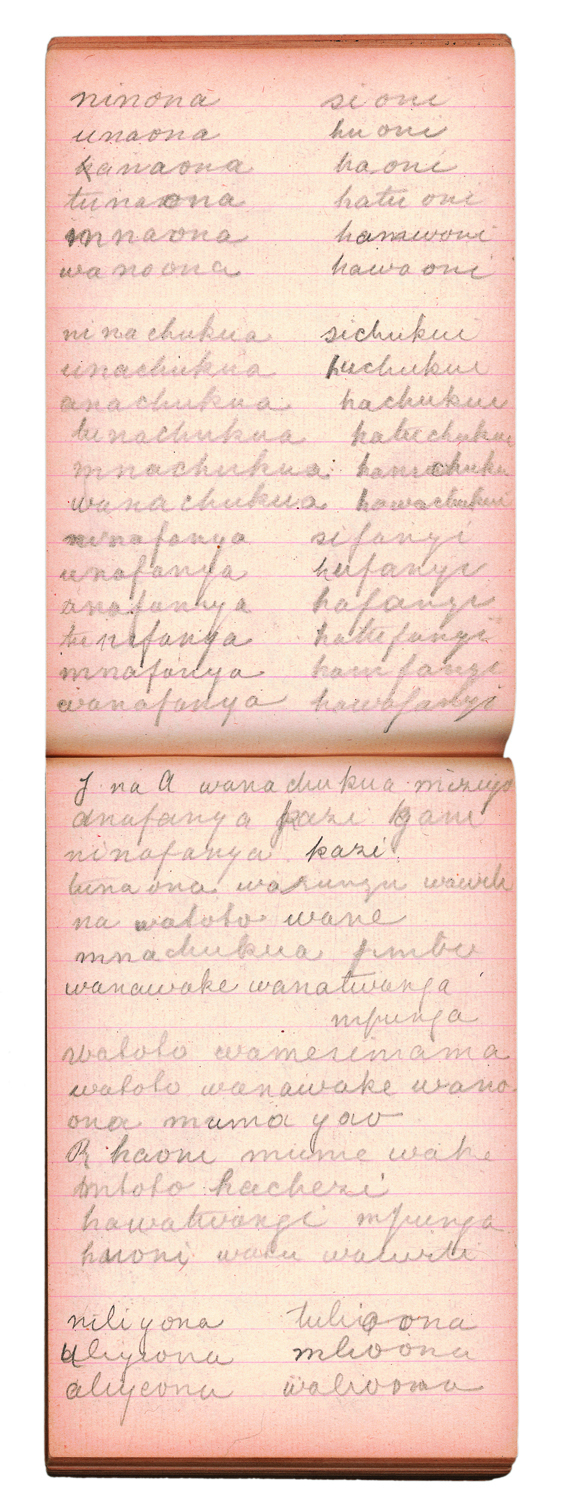 ninona sioni
unaona huoni
anaona haoni
tunaona hatuoni
mnaona hamwoni
wanaona hawaoni
ninachukua sichukui
unachukua huchukui
anachukua hachukui
tunachukua hatuchukui
mnachukua hamchuku
wanachukua hawachukui
ninafanya sifanyi
unafanya hufanyi
anafanya hafanyi
tunafanya hatufanyi
mnafanya hamfanyi
wanafanya hawafanyi
J na A wanachukua mizigo
anafanya kazi gani
ninafanya kazi
tunaona wazungu wawili
na watoto wane
mnachukua fimbo
wanawake wanatwanga
mpunga
watoto wamesimama
watoto wanawake wana
ona mama yao
R haoni mume wake
mtoto hachezi
hawatwangi mpunga
huoni watu wawili
niliyona tulioona
uliyeona mlioona
aliyeona walioona